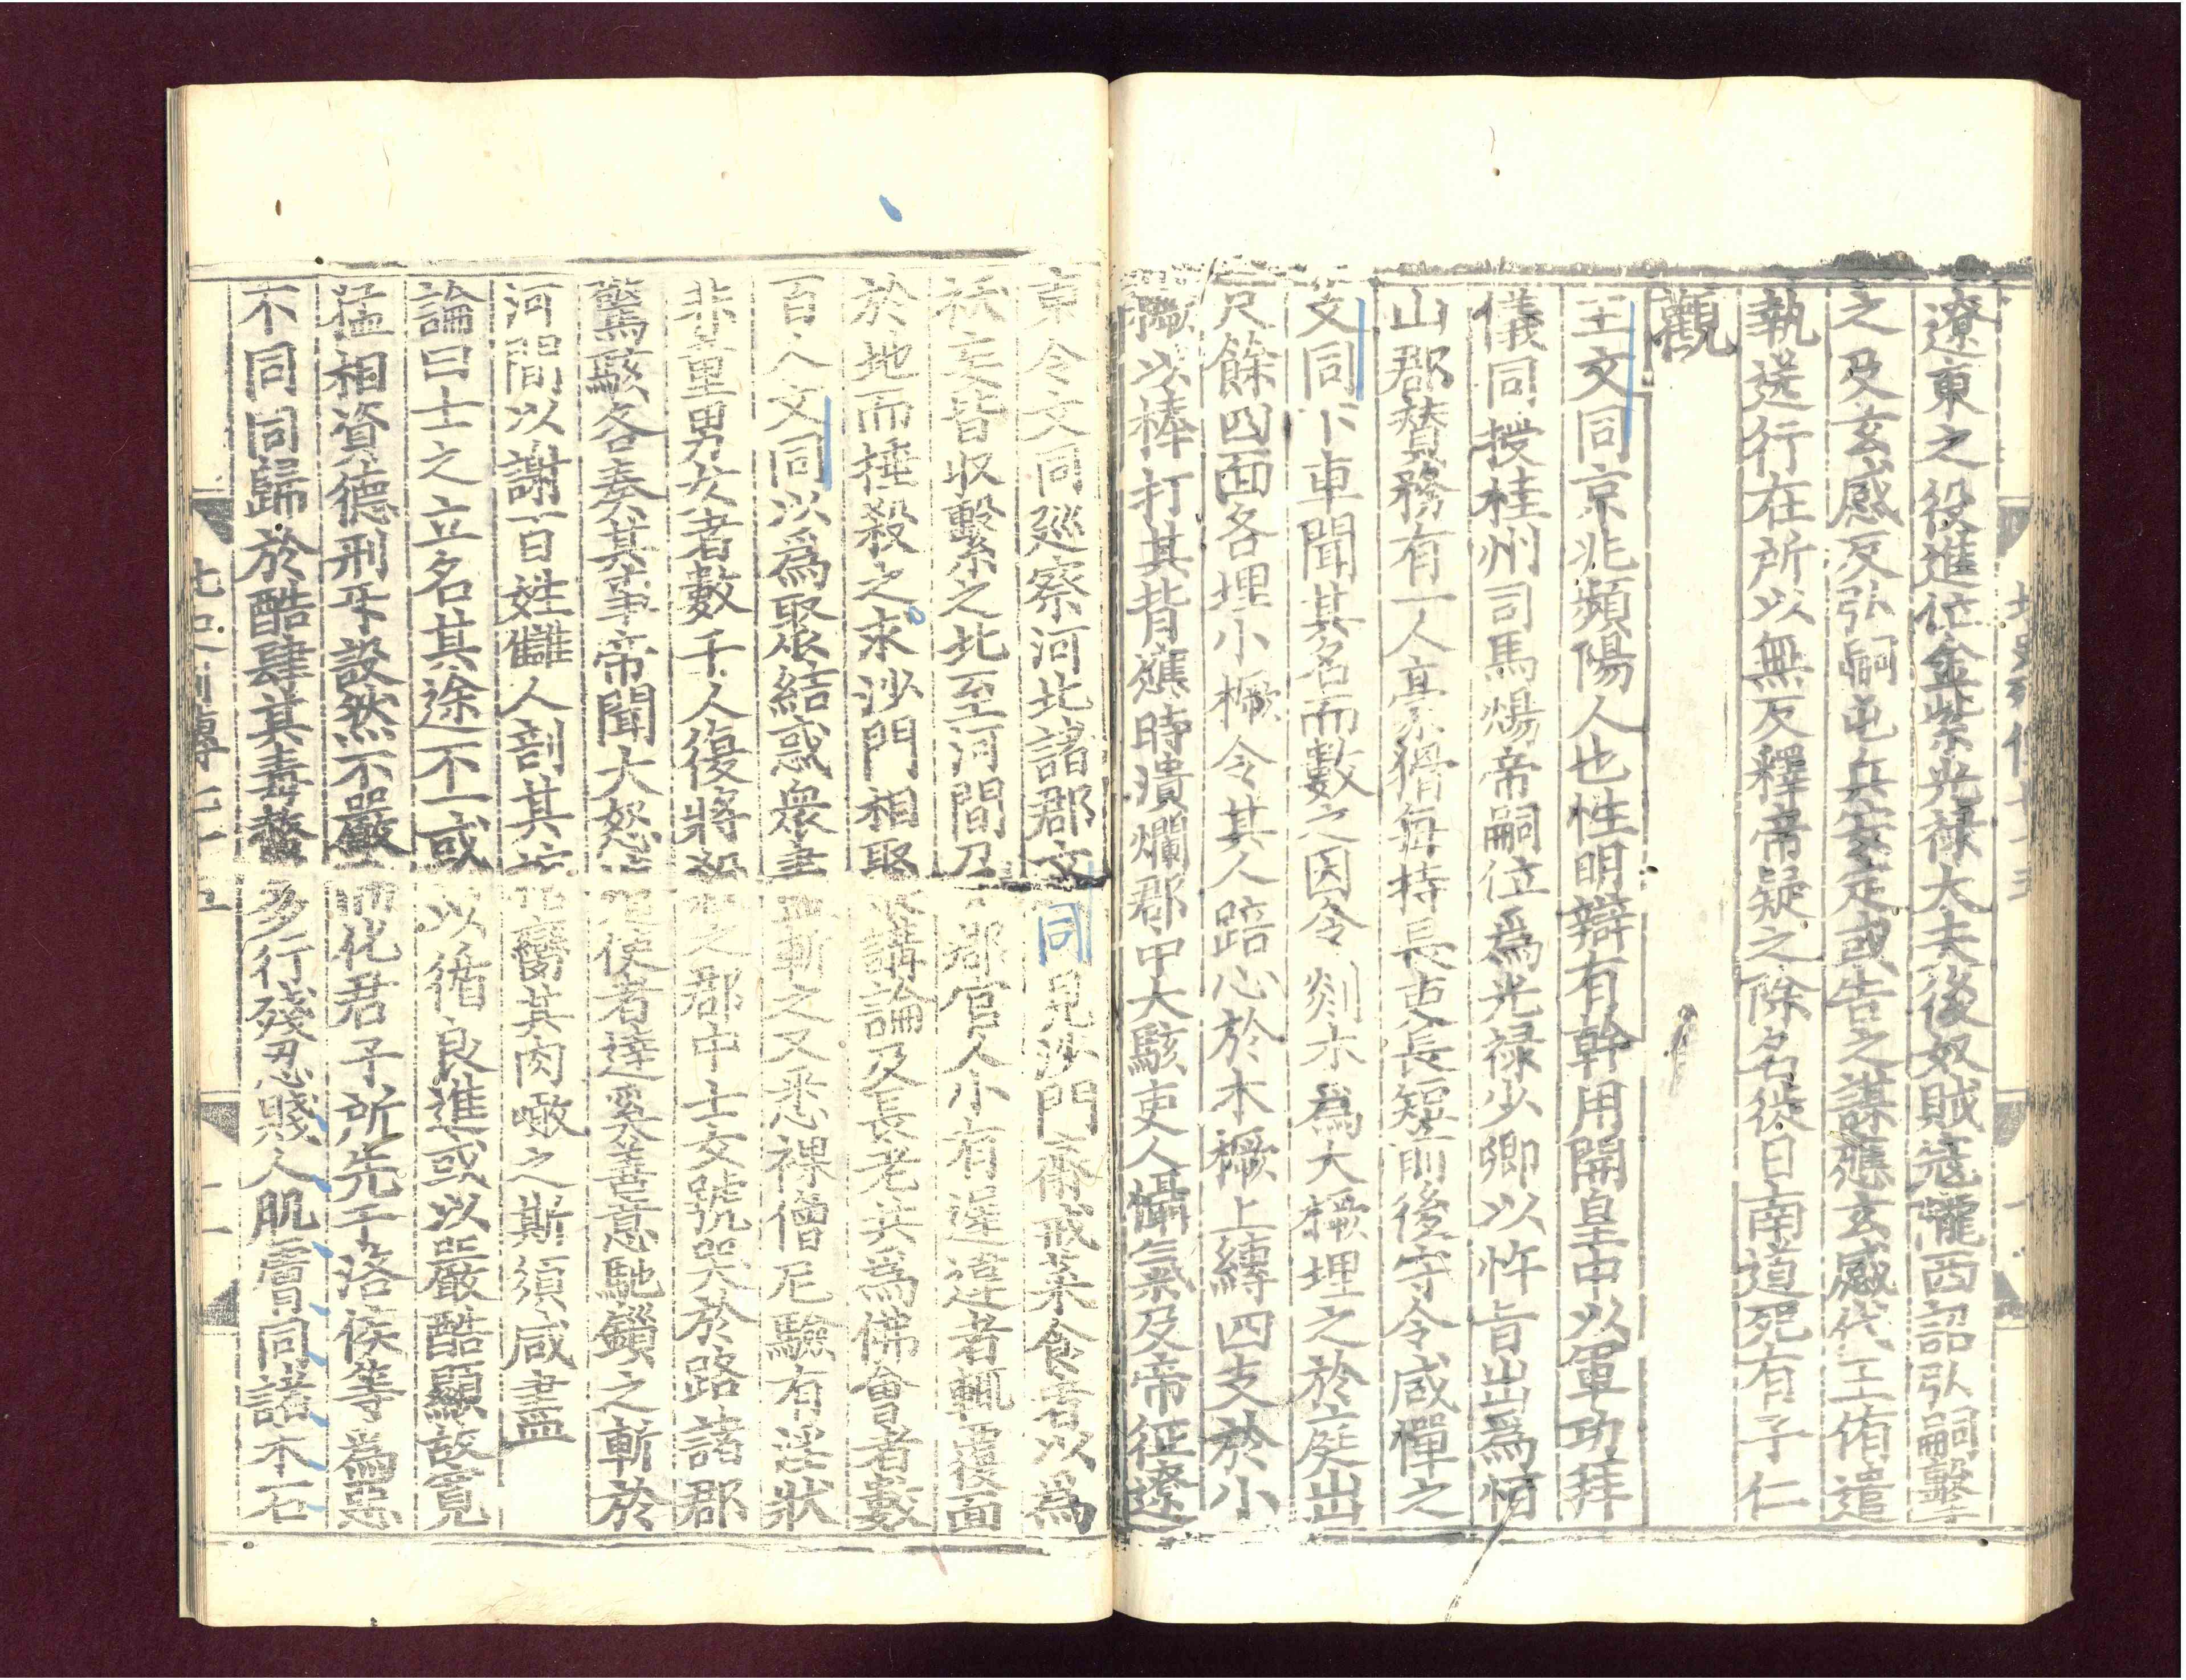 遼東之役進位金紫光禄大夫後奴賊寇隴西詔弘嗣擊
之及玄感反弘嗣屯兵安定或告之謀應玄感代王侑遣
執送行在所以無反釋帝疑之除名徙日南道死有子仁
觀
王文同京兆頻陽人也性明辯有幹用開皇中以軍功拜
儀同授桂州司馬煬帝嗣位爲光禄少卿以忤旨出爲恒
山郡贊務有一人豪猾每持長吏長短前後守令咸憚之
文同下車聞其名而數之因令剡木爲大橛埋之於庭出
尺餘四面各埋小橛令其人踣心於木橛上縛四支於小
橛以棒打其背應時潰爛郡中大駭吏人懾氣及帝征遼
京令文同廵察河北諸郡文同見沙門齋戒菜食者以爲
祅妄皆收繫之北至河間召郡官人小有遲違者輒覆面
於地而捶殺之求沙門相聚講論及長老共爲佛會者數
百人文同以爲聚結惑衆盡斬之又悉裸僧尼驗有淫狀
非童男女者數千人復將殺之郡中士女號哭於路諸郡
驚駭各奏其事帝聞大怒遣使者達奚善意馳鎖之斬於
河間以謝百姓讎人剖其棺臠其肉噉之斯須咸盡
論曰士之立名其途不一或以循良進或以嚴酷顯故寛
猛相資德刑互設然不嚴而化君子所先于洛侯等爲惡
不同同歸於酷肆其毒螫多行殘忍賤人肌膚同諸木石